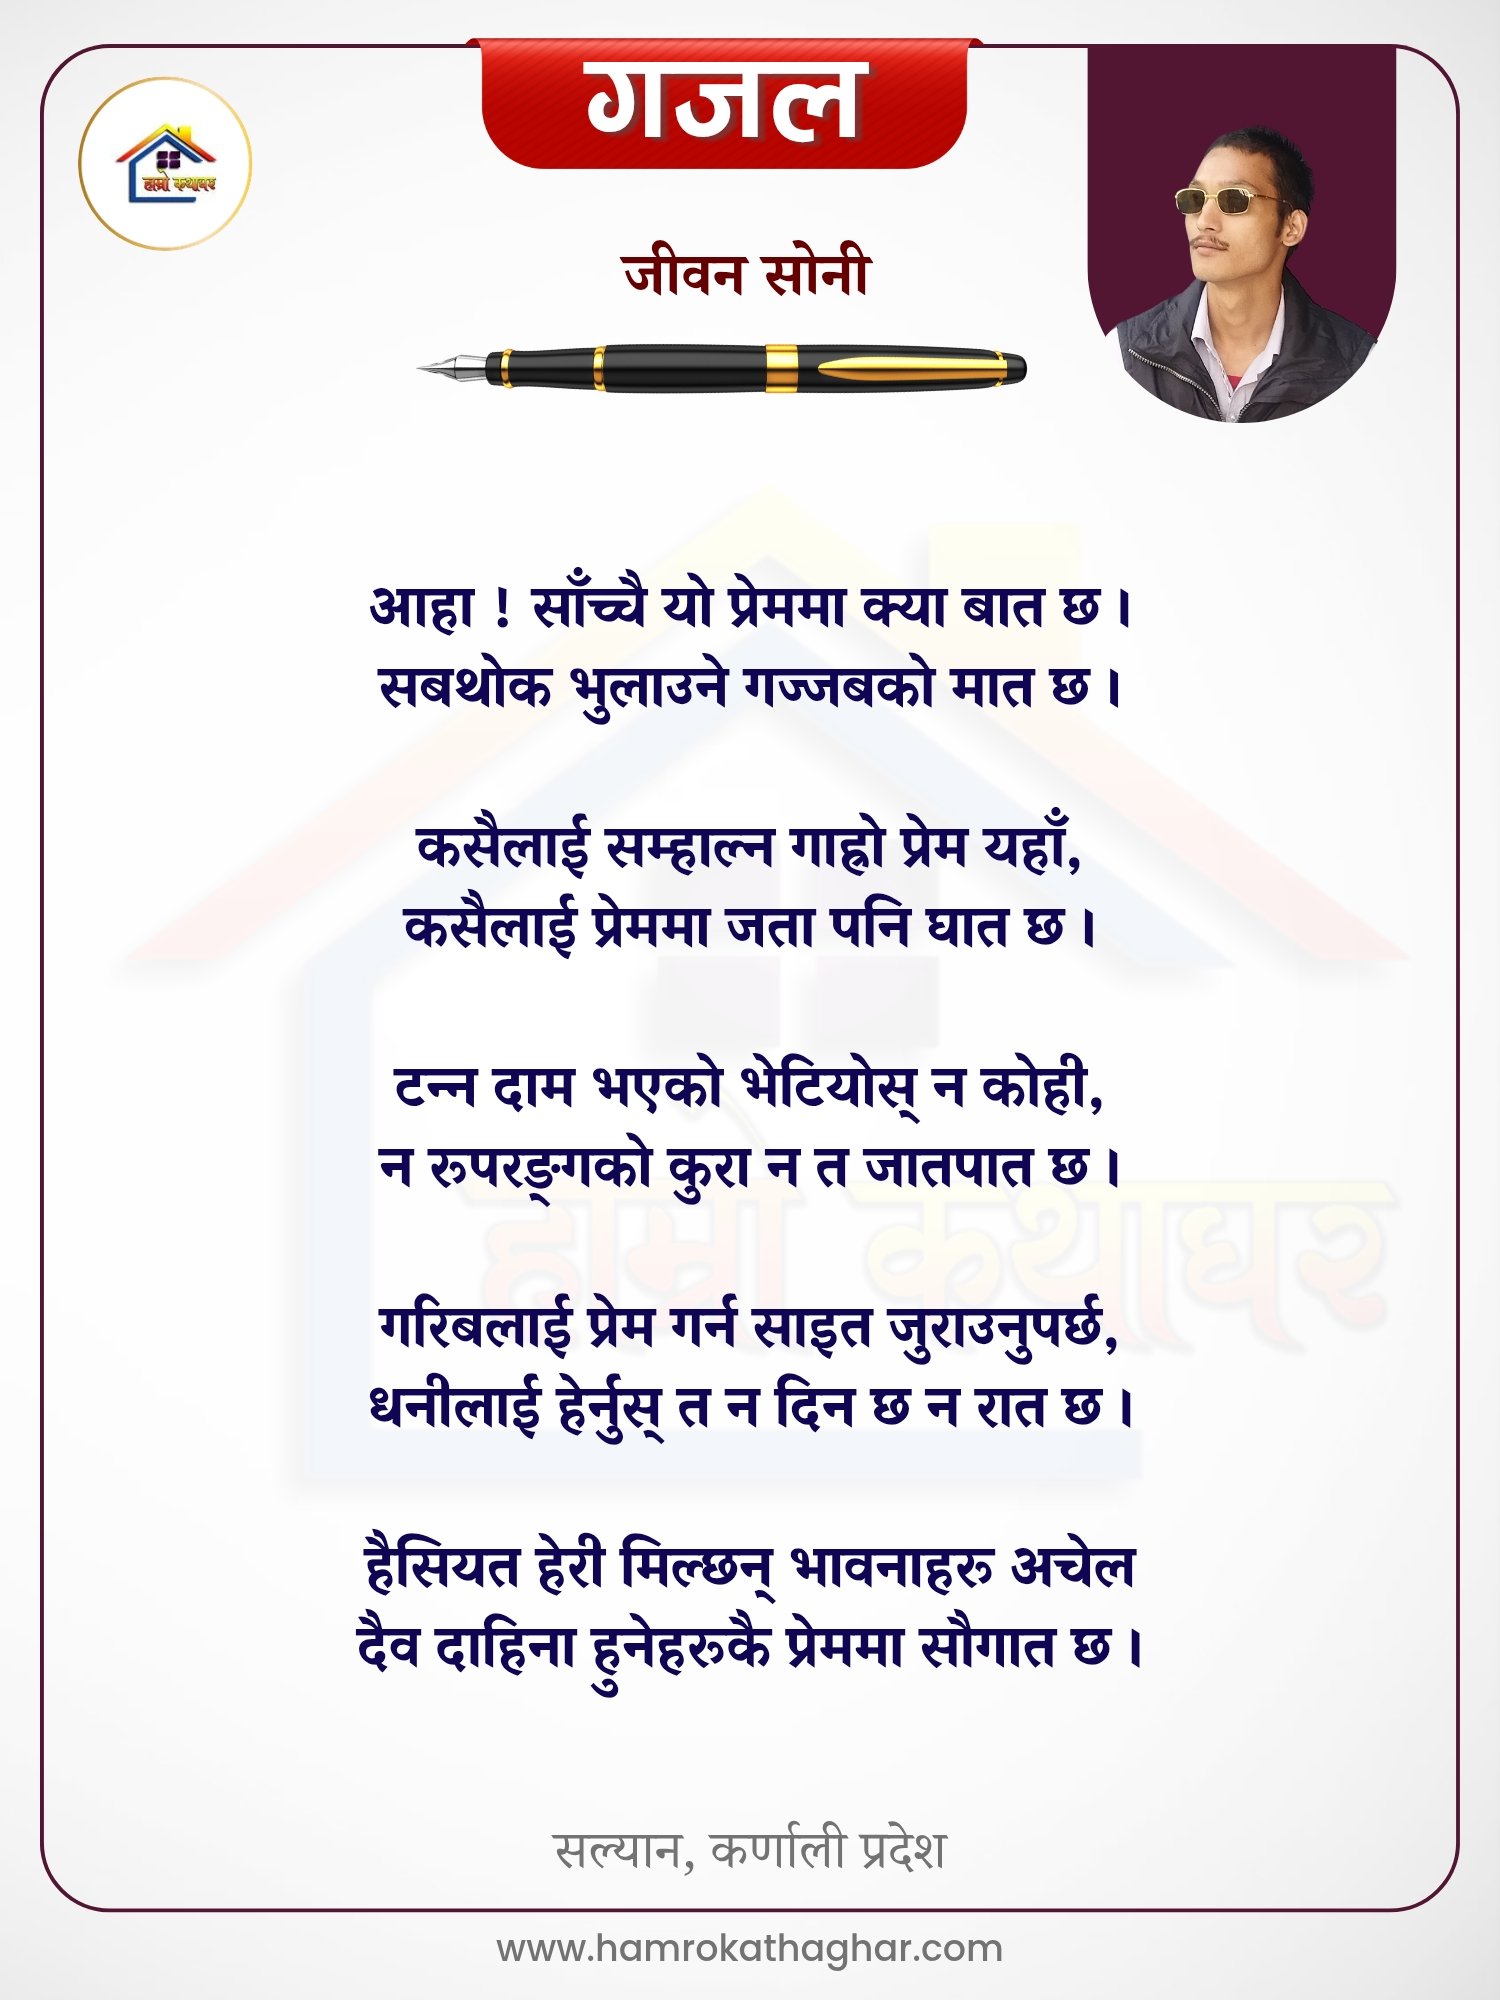 गजल
हाम्रो कथाघर
जीवन सोनी
आहा ! साँच्चै यो प्रेममा क्या बात छ।
सबथोक भुलाउने गज्जबको मात छ।
कसैलाई सम्हाल्न गाह्रो प्रेम यहाँ,
कसैलाई प्रेममा जता पनि घात छ।
टन्न दाम भएको भेटियोस् न कोही,
न रूपरङ्गको कुरा न त जातपात छ।
गरिबलाई प्रेम गर्न साइत जुराउनुपर्छ,
धनीलाई हेर्नुस् त न दिन छ न रात छ।
हैसियत हेरी मिल्छन् भावनाहरू अचेल
दैव दाहिना हुनेहरूकै प्रेममा सौगात छ।
हाम्रो कथाघर
सल्यान, कर्णाली प्रदेश
www.hamrokathaghar.com